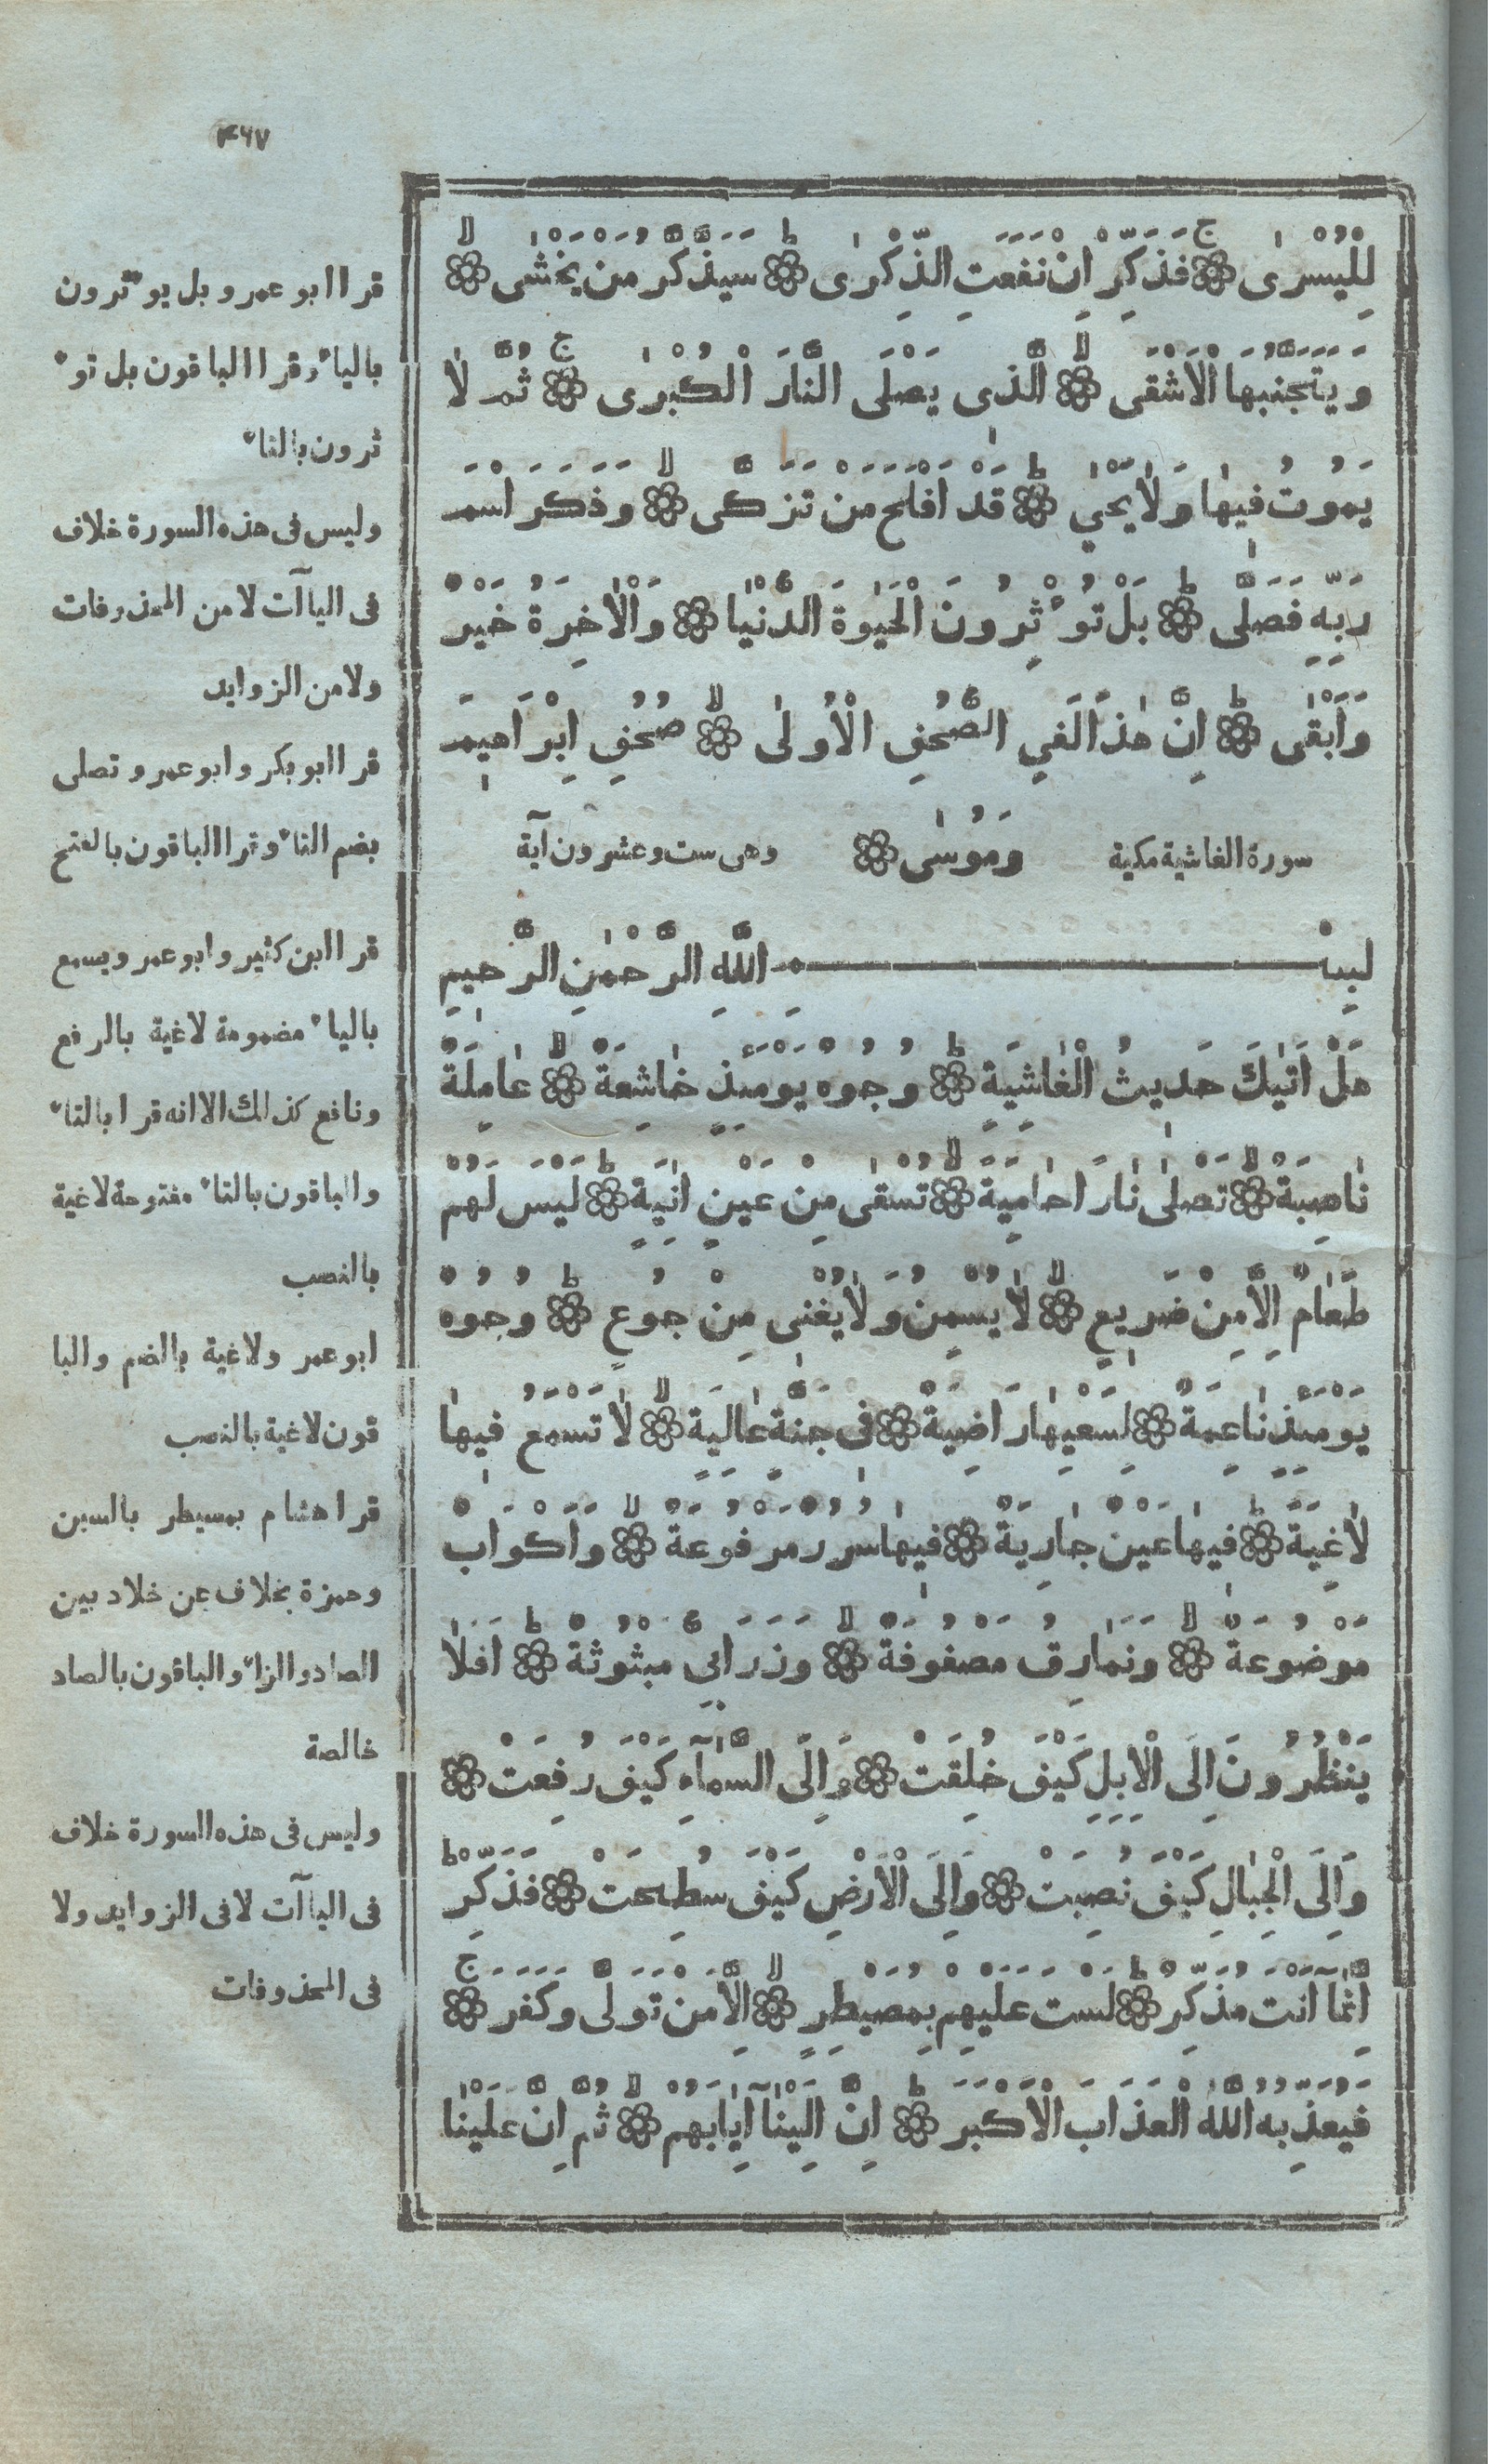 ۴۶۷
لِلْيُسْرٰى ۞ فَذَكِّرْ اِنْ نَفَعَتِ الذِّكْرٰى ۞ سَيَذَّكَّرُ مَنْ يَخْشٰى ۞
وَيَتَجَنَّبُهَا الْاَشْقَى ۞ الَّذِى يَصْلَى النَّارَ الْكُبْرٰى ۞ ثُمَّ لَا
يَمُوتُ فِيهَا وَلَا يَحْيٰي ۞ قَدْ اَفْلَحَ مَنْ تَزَكّٰى ۞ وَذَكَرَ اسْمَ
رَبِّهِ فَصَلّٰى ۞ بَلْ تُؤْثِرُونَ الْحَيٰوةَ الدُّنْيَا ۞ وَالْاٰخِرَةُ خَيْرٌ
وَاَبْقٰى ۞ اِنَّ هٰذَا لَفِي الصُّحُفِ الْاُولٰى ۞ صُحُفِ اِبْرَاهِيمَ
سورة الغاشية مكية وَمُوسٰى ۞ وهى ست وعشرون آية
بِسْمِ اللّٰهِ الرَّحْمٰنِ الرَّحِيمِ
هَلْ اَتٰيكَ حَدِيثُ الْغَاشِيَةِ ۞ وُجُوهٌ يَوْمَئِذٍ خَاشِعَةٌ ۞ عَامِلَةٌ
نَاصِبَةٌ ۞ تَصْلٰى نَارًا حَامِيَةً ۞ تُسْقٰى مِنْ عَيْنٍ اٰنِيَةٍ ۞ لَيْسَ لَهُمْ
طَعَامٌ اِلَّا مِنْ ضَرِيعٍ ۞ لَا يُسْمِنُ وَلَا يُغْنِى مِنْ جُوعٍ ۞ وُجُوهٌ
يَوْمَئِذٍ نَاعِمَةٌ ۞ لِسَعْيِهَا رَاضِيَةٌ ۞ فِى جَنَّةٍ عَالِيَةٍ ۞ لَا تَسْمَعُ فِيهَا
لَاغِيَةً ۞ فِيهَا عَيْنٌ جَارِيَةٌ ۞ فِيهَا سُرُرٌ مَرْفُوعَةٌ ۞ وَاَكْوَابٌ
مَوْضُوعَةٌ ۞ وَنَمَارِقُ مَصْفُوفَةٌ ۞ وَزَرَابِيُّ مَبْثُوثَةٌ ۞ اَفَلَا
يَنْظُرُونَ اِلَى الْاِبِلِ كَيْفَ خُلِقَتْ ۞ وَاِلَى السَّمَآءِ كَيْفَ رُفِعَتْ ۞
وَاِلَى الْجِبَالِ كَيْفَ نُصِبَتْ ۞ وَاِلَى الْاَرْضِ كَيْفَ سُطِحَتْ ۞ فَذَكِّرْ
اِنَّمَآ اَنْتَ مُذَكِّرٌ ۞ لَسْتَ عَلَيْهِمْ بِمُصَيْطِرٍ ۞ اِلَّا مَنْ تَوَلّٰى وَكَفَرَ ۞
فَيُعَذِّبُهُ اللّٰهُ الْعَذَابَ الْاَكْبَرَ ۞ اِنَّ اِلَيْنَآ اِيَابَهُمْ ۞ ثُمَّ اِنَّ عَلَيْنَا
قرا ابو عمرو بل يوءثرون
بالياء وقرا الباقون بل توء
ثرون بالتاء
وليس فى هذه السورة خلاف
فى الياآت لا من المحذوفات
ولا من الزوايد
قرا ابو بكر وابو عمرو تصلى
بضم التاء وقرا الباقون بالفتح
قرا ابن كثير وابو عمرو يسمع
بالياء مضمومة لاغية بالرفع
ونافع كذلك الا انه قرا بالتاء
والباقون بالتاء مفتوحة لاغية
بالنصب
ابو عمر ولاغية بالضم والبا
قون لاغية بالنصب
قرا هشام بمسيطر بالسين
وحمزة بخلاف عن خلاد بين
الصاد والزاء والباقون بالصاد
خالصة
وليس فى هذه السورة خلاف
فى الياآت لا فى الزوايد ولا
فى المحذوفات